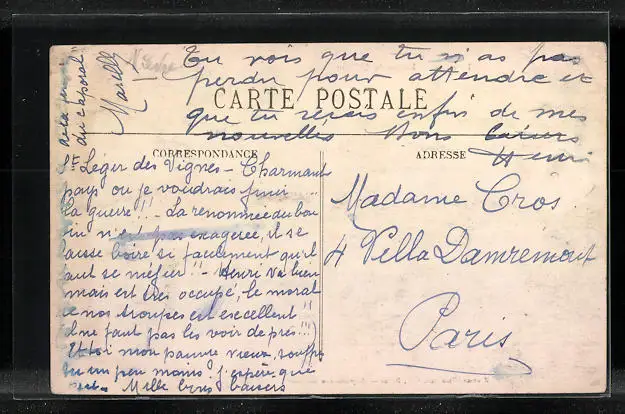 Tu vois que tu n'as pas
perdu pour attendre et
que tu reçois enfin de mes
nouvelles Bons baisers
Henri
du caporal
CARTE POSTALE
CORRESPONDANCE
ADRESSE
St Léger des Vignes - Charmant
pays ou je voudrais finir
la guerre!! - La renommée du bon
vin n'est pas exagerée, il se
laisse boire si facilement qu'il
faut se méfier!! - Henri va bien
mais est très occupé, le moral
de nos troupes est excellent!!
il ne faut pas les voir de près!!!
Et toi mon pauvre vieux, souffres
tu un peu moins j'espère que
Mille bons baisers
Madame Cros
4 Villa Damrémont
Paris